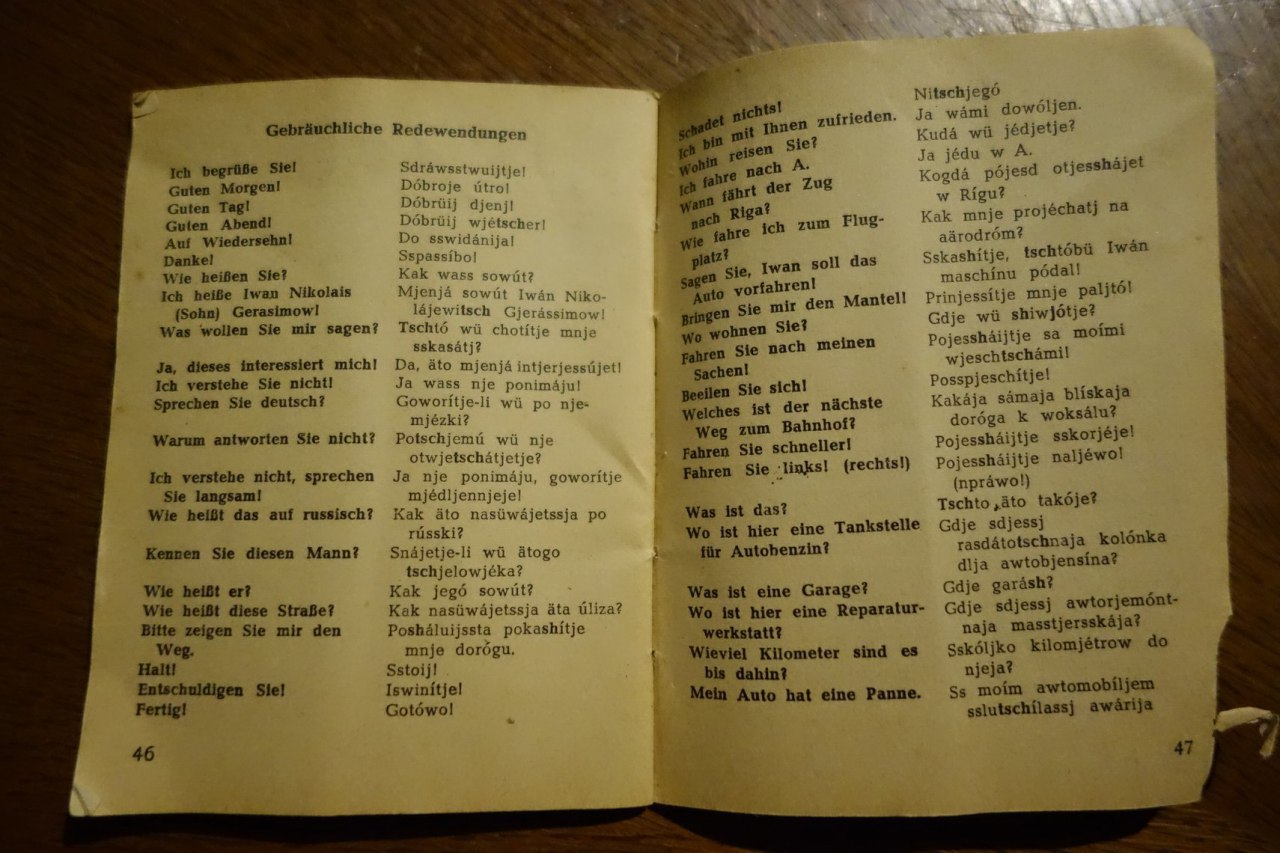 Gebräuchliche Redewendungen
Ich begrüße Sie! Sdráwsstwuijtje!
Guten Morgen! Dóbroje útro!
Guten Tag! Dóbrüij djenj!
Guten Abend! Dóbrüij wjétscher!
Auf Wiedersehn! Do sswidánija!
Danke! Sspassíbo!
Wie heißen Sie? Kak wass sowút?
Ich heiße Iwan Nikolais Mjenjá sowút Iwán Niko-
(Sohn) Gerasimow! lájewitsch Gjerássimow!
Was wollen Sie mir sagen? Tschtó wü chotítje mnje
sskasátj?
Ja, dieses interessiert mich! Da, äto mjenjá intjerjessújet!
Ich verstehe Sie nicht! Ja wass nje ponimáju!
Sprechen Sie deutsch? Goworítje-li wü po nje-
mjézki?
Warum antworten Sie nicht? Potschjemú wü nje
otwjetschátjetje?
Ich verstehe nicht, sprechen Ja nje ponimáju, goworítje
Sie langsam! mjédljennjeje!
Wie heißt das auf russisch? Kak äto nasüwájetssja po
rússki?
Kennen Sie diesen Mann? Snájetje-li wü ätogo
tschjelowjéka?
Wie heißt er? Kak jegó sowút?
Wie heißt diese Straße? Kak nasüwájetssja äta úliza?
Bitte zeigen Sie mir den Posháluijssta pokashítje
Weg. mnje dorógu.
Halt! Sstoij!
Entschuldigen Sie! Iswinítje!
Fertig! Gotówo!
46
Schadet nichts! Nitschjegó
Ich bin mit Ihnen zufrieden. Ja wámi dowóljen.
Wohin reisen Sie? Kudá wü jédjetje?
Ich fahre nach A. Ja jédu w A.
Wann fährt der Zug Kogdá pójesd otjesshájet
nach Riga? w Rígu?
Wie fahre ich zum Flug- Kak mnje projéchatj na
platz? aärodróm?
Sagen Sie, Iwan soll das Sskashítje, tschtóbü Iwán
Auto vorfahren! maschínu pódal!
Bringen Sie mir den Mantel! Prinjessítje mnje paljtó!
Wo wohnen Sie? Gdje wü shiwjótje?
Fahren Sie nach meinen Pojessháijtje sa moími
Sachen! wjeschtschámi!
Beeilen Sie sich! Posspjeschítje!
Welches ist der nächste Kakája sámaja blískaja
Weg zum Bahnhof? doróga k woksálu?
Fahren Sie schneller! Pojessháijtje sskorjéje!
Fahren Sie links! (rechts!) Pojessháijtje naljéwo!
(npráwo!)
Was ist das? Tschto äto takóje?
Wo ist hier eine Tankstelle Gdje sdjessj
für Autobenzin? rasdátotschnaja kolónka
dlja awtobjensína?
Was ist eine Garage? Gdje garásh?
Wo ist hier eine Reparatur- Gdje sdjessj awtorjemónt-
werkstatt? naja masstjersskája?
Wieviel Kilometer sind es Sskóljko kilomjétrow do
bis dahin? njeja?
Mein Auto hat eine Panne. Ss moím awtomobíljem
sslutschílassj awárija
47